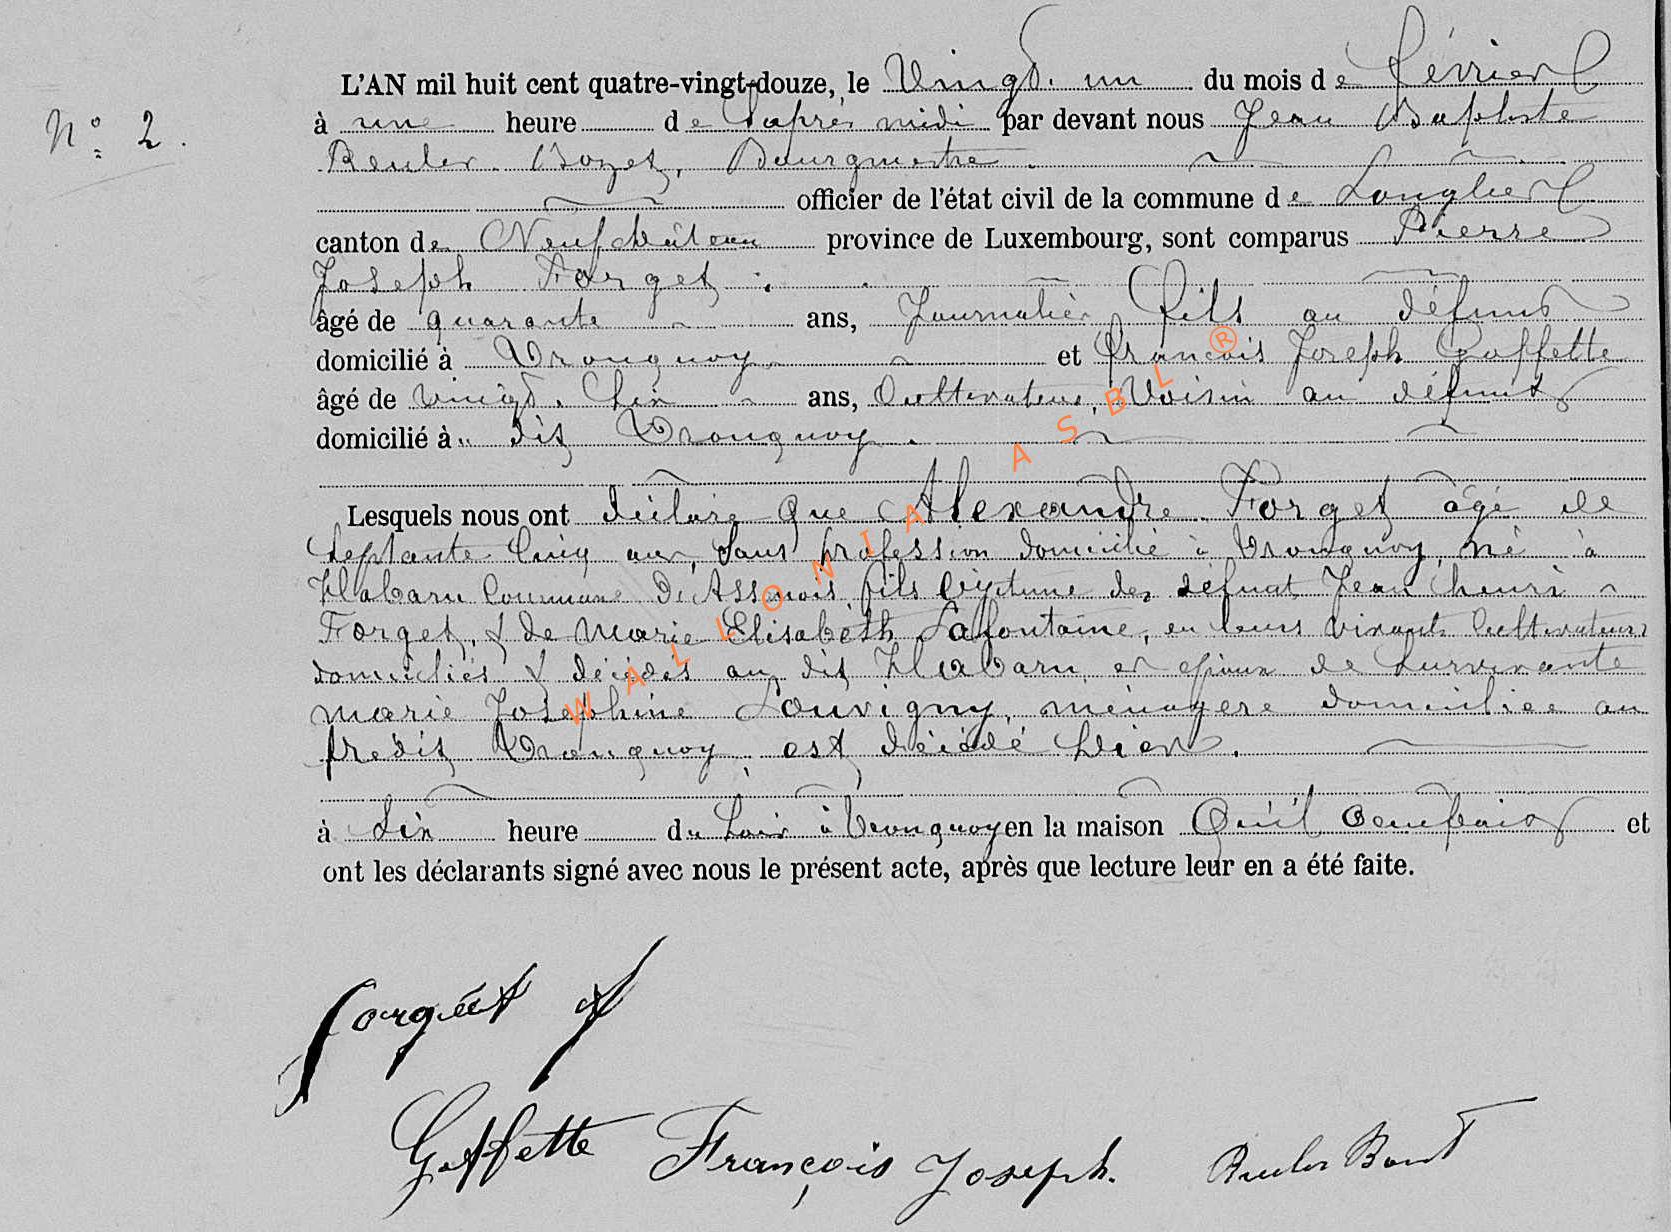 N° 2.
L'AN mil huit cent quatre-vingt-douze, le Vingt. un du mois de février
à une heure de l'après midi par devant nous Jean Baptiste
Reuler. Bozet, Bourgmestre.
officier de l'état civil de la commune de Longlier
canton de Neufchâteau province de Luxembourg, sont comparus Pierre
Joseph Forget.
âgé de quarante ans, Journalier fils au défunt
domicilié à Tronquoy et François Joseph Goffette
âgé de Vingt. Six ans, Cultivateur, Voisin au défunt
domicilié à dit Tronquoy.
Lesquels nous ont déclaré que Alexandre Forget âgé de
septante cinq ans, sans profession domicilié à Tronquoy, né à
Habaru Commune d'Assenois, fils légitime des défunt Jean henri
Forget, & de Marie Elisabeth Lafontaine, en leurs vivants Cultivateurs
domiciliés & décédés au dit Habaru, et époux de Survivante
Marie Joséphine Louvigny, ménagère domiciliée au
predit Tronquoy, est décédé hier.
à Six heure du Soir à Tronquoy en la maison Qu'il occupait et
ont les déclarants signé avec nous le présent acte, après que lecture leur en a été faite.
forgèt
Goffette François Joseph. Reuler Bozet
WALLONIA ASBL ®